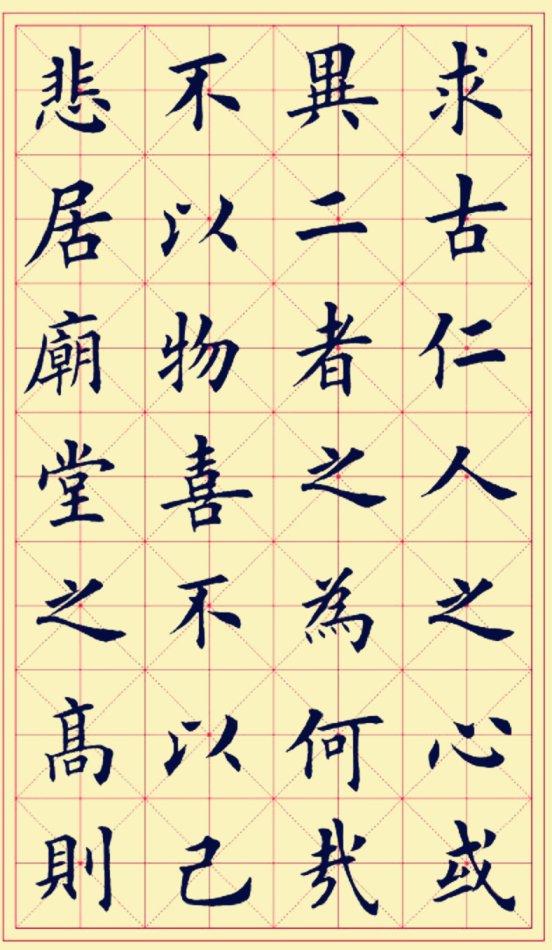 求古仁人之心或
異二者之為何㢤
不以物喜不以己
悲居廟堂之髙則